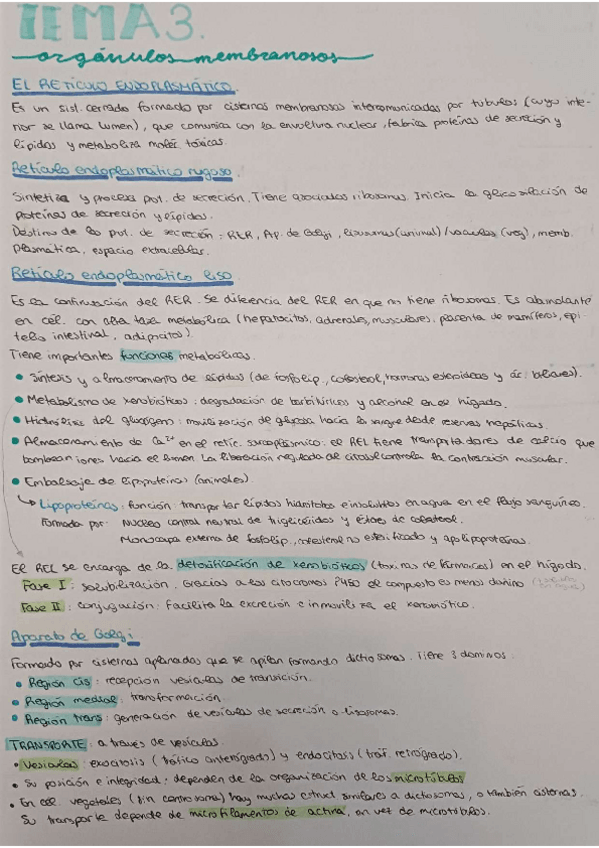 TEMA 3.
orgánulos membranosos
EL RETÍCULO ENDOPLASMÁTICO.
Es un sist. cerrado formado por cisternas membranosas intercomunicadas por túbulos (cuyo inte-
rior se llama lumen), que comunica con la envoltura nuclear, fabrica proteínas de secreción y
lípidos y metaboliza moléc. tóxicas.
Retículo endoplasmático rugoso.
Sintetiza y procesa prot. de secreción. Tiene asociados ribosomas. Inicia la glicosilación de
proteínas de secreción y lípidos.
Destinos de las prot. de secreción: RER, Ap. de Golgi, lisosomas (animal) / vacuolas (veg), memb.
plasmática, espacio extracelular.
Retículo endoplasmático liso.
Es la continuación del RER. Se diferencia del RER en que no tiene ribosomas. Es abundante
en cél. con alta tasa metabólica (hepatocitos, adrenales, musculares, placenta de mamíferos, epi-
telio intestinal, adipocitos).
Tiene importantes funciones metabólicas.
• Síntesis y almacenamiento de lípidos (de fosfolip., colesterol, hormonas esteroideas y ác. biliares).
• Metabolismo de xenobióticos: degradación de barbitúricos y alcohol en el hígado.
• Hidrólisis del glucógeno: movilización de glucosa hacia la sangre desde reservas hepáticas.
• Almacenamiento de Ca²⁺ en el retíc. sarcoplásmico: el REL tiene transportadores de calcio que
bombean iones hacia el lumen. La liberación regulada al citosol controla la contracción muscular.
• Embalaje de lipoproteínas (animales).
↳ Lipoproteínas, función: transportar lípidos hidrófobos e insolubles en agua en el flujo sanguíneo.
Formada por: Núcleo central neutral de triglicéridos y ésteres de colesterol.
Monocapa externa de fosfolip., colesterol no esterificado y apolipoproteínas.
El REL se encarga de la detoxificación de xenobióticos (toxinas de fármacos) en el hígado.
Fase I: solubilización. Gracias a los citocromos P450 el compuesto es menos dañino
Fase II: conjugación: Facilita la excreción e inmoviliza el xenobiótico.
Aparato de Golgi
Formado por cisternas aplanadas que se apilan formando dictiosomas. Tiene 3 dominios.
• Región cis: recepción vesículas de transición.
• Región medial: transformación.
• Región trans: generación de vesículas de secreción o lisosomas.
TRANSPORTE: a través de vesículas.
• Vesículas: exocitosis (tráfico anterógrado) y endocitosis (tráf. retrógrado).
• Su posición e integridad: dependen de la organización de los microtúbulos
• En cél. vegetales (sin centrosoma) hay muchas estruct. similares a dictiosomas, o también cisternas.
Su transporte depende de microfilamentos de actina, en vez de microtúbulos.